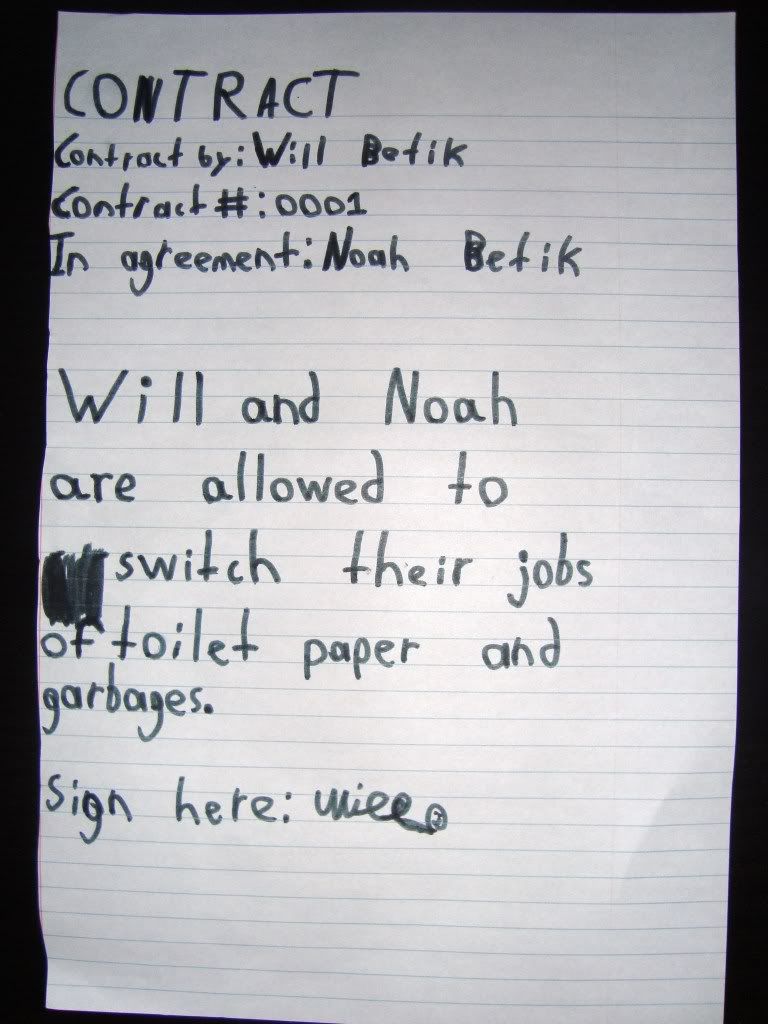 CONTRACT
Contract by: Will Betik
Contract #: 0001
In agreement: Noah Betik
Will and Noah
are allowed to
switch their jobs
of toilet paper and
garbages.
Sign here: Will